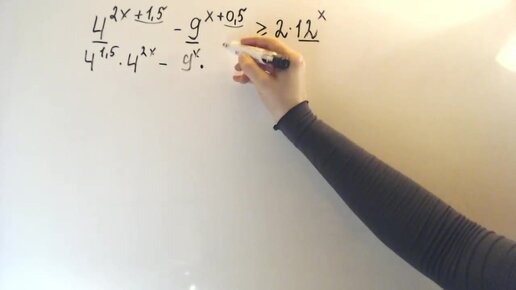 4^{2x+1,5} - 9^{x+0,5} ≥ 2·12^x
4^{1,5}·4^{2x} - 9^x·